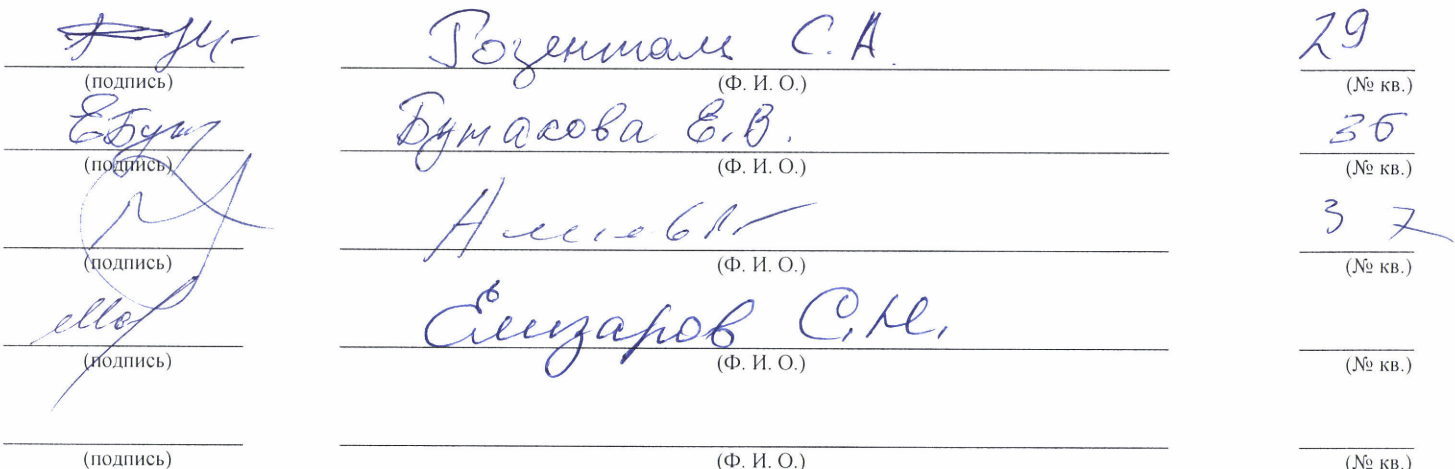 Розенталь С.А. 29
(подпись) (Ф. И. О.) (№ кв.)
ЕБут Бутакова Е.В. 36
(подпись) (Ф. И. О.) (№ кв.)
37
(подпись) (Ф. И. О.) (№ кв.)
Елизаров С.М.
(подпись) (Ф. И. О.) (№ кв.)
(подпись) (Ф. И. О.) (№ кв.)